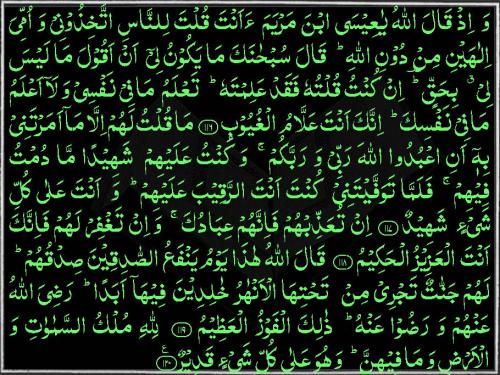 وَ اِذْ قَالَ اللّٰهُ يٰعِيْسَى ابْنَ مَرْيَمَ ءَاَنْتَ قُلْتَ لِلنَّاسِ اتَّخِذُوْنِيْ وَ اُمِّيَ
اِلٰهَيْنِ مِنْ دُوْنِ اللّٰهِ ؕ قَالَ سُبْحٰنَكَ مَا يَكُوْنُ لِيْۤ اَنْ اَقُوْلَ مَا لَيْسَ
لِيْ ۗ بِحَقٍّ ؕ اِنْ كُنْتُ قُلْتُهٗ فَقَدْ عَلِمْتَهٗ ؕ تَعْلَمُ مَا فِيْ نَفْسِيْ وَ لَاۤ اَعْلَمُ
مَا فِيْ نَفْسِكَ ؕ اِنَّكَ اَنْتَ عَلَّامُ الْغُيُوْبِ ﴿۱۱۶﴾ مَا قُلْتُ لَهُمْ اِلَّا مَاۤ اَمَرْتَنِيْ
بِهٖۤ اَنِ اعْبُدُوا اللّٰهَ رَبِّيْ وَ رَبَّكُمْ ۚ وَ كُنْتُ عَلَيْهِمْ شَهِيْدًا مَّا دُمْتُ
فِيْهِمْ ۚ فَلَمَّا تَوَفَّيْتَنِيْ كُنْتَ اَنْتَ الرَّقِيْبَ عَلَيْهِمْ ؕ وَ اَنْتَ عَلٰى كُلِّ
شَيْءٍ شَهِيْدٌ ﴿۱۱۷﴾ اِنْ تُعَذِّبْهُمْ فَاِنَّهُمْ عِبَادُكَ ۚ وَ اِنْ تَغْفِرْ لَهُمْ فَاِنَّكَ
اَنْتَ الْعَزِيْزُ الْحَكِيْمُ ﴿۱۱۸﴾ قَالَ اللّٰهُ هٰذَا يَوْمُ يَنْفَعُ الصّٰدِقِيْنَ صِدْقُهُمْ ؕ
لَهُمْ جَنّٰتٌ تَجْرِيْ مِنْ تَحْتِهَا الْاَنْهٰرُ خٰلِدِيْنَ فِيْهَاۤ اَبَدًا ؕ رَضِيَ اللّٰهُ
عَنْهُمْ وَ رَضُوْا عَنْهُ ؕ ذٰلِكَ الْفَوْزُ الْعَظِيْمُ ﴿۱۱۹﴾ لِلّٰهِ مُلْكُ السَّمٰوٰتِ وَ
الْاَرْضِ وَ مَا فِيْهِنَّ ؕ وَ هُوَ عَلٰى كُلِّ شَيْءٍ قَدِيْرٌ ﴿۱۲۰﴾ ع